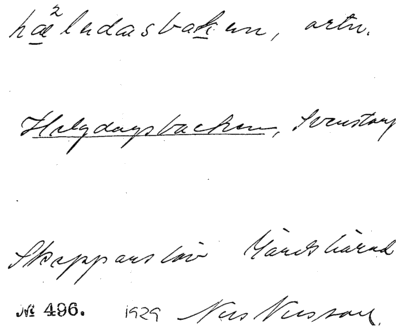 hæ²ludasbakun, ortn.
Helgdagsbacken, Svenstorp
Skepparslöv Gärds härad
№ 496. 1929 Nils Nilsson.